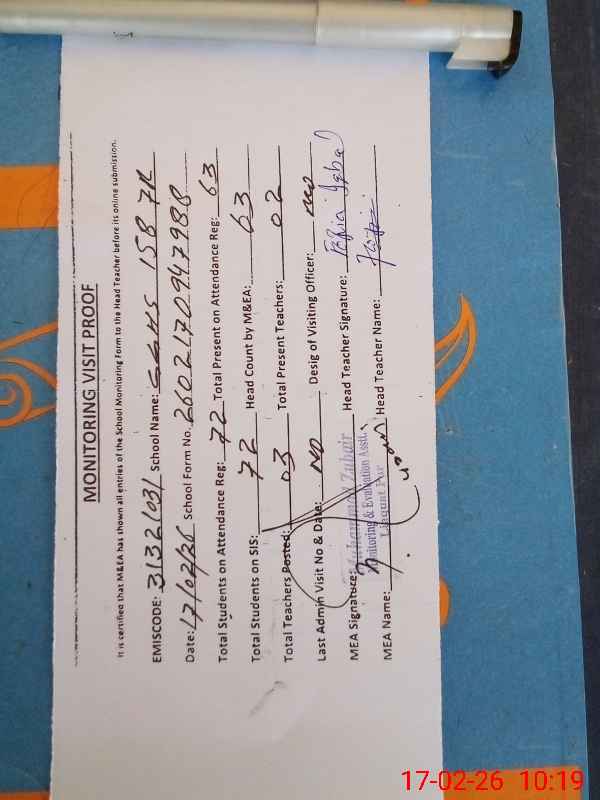 MONITORING VISIT PROOF
It is certified that M&EA has shown all entries of the School Monitoring Form to the Head Teacher before its online submission.
EMISCODE: 31321031 School Name: GGHS 158 7R
Date: 17/02/26 School Form No. 2602170947988
Total Students on Attendance Reg: 72 Total Present on Attendance Reg: 63
Total Students on SIS: 72 Head Count by M&EA: 63
Total Teachers Posted: 03 Total Present Teachers: 02
Last Admin Visit No & Date: No Desig of Visiting Officer: No
MEA Signature: Muhammad Zubair Head Teacher Signature:
Monitoring & Evaluation Asstt.
Liaquat Pur
MEA Name: Head Teacher Name:
17-02-26 10:19